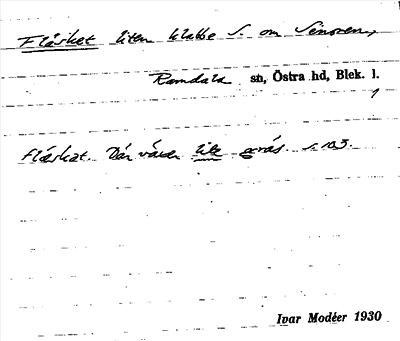 Fläsket liten klabbe S. om Senoren,
Ramdala sn, Östra hd, Blek. l.
1
Fläskat. Där växer lite gräs. s. 103.
Ivar Modéer 1930